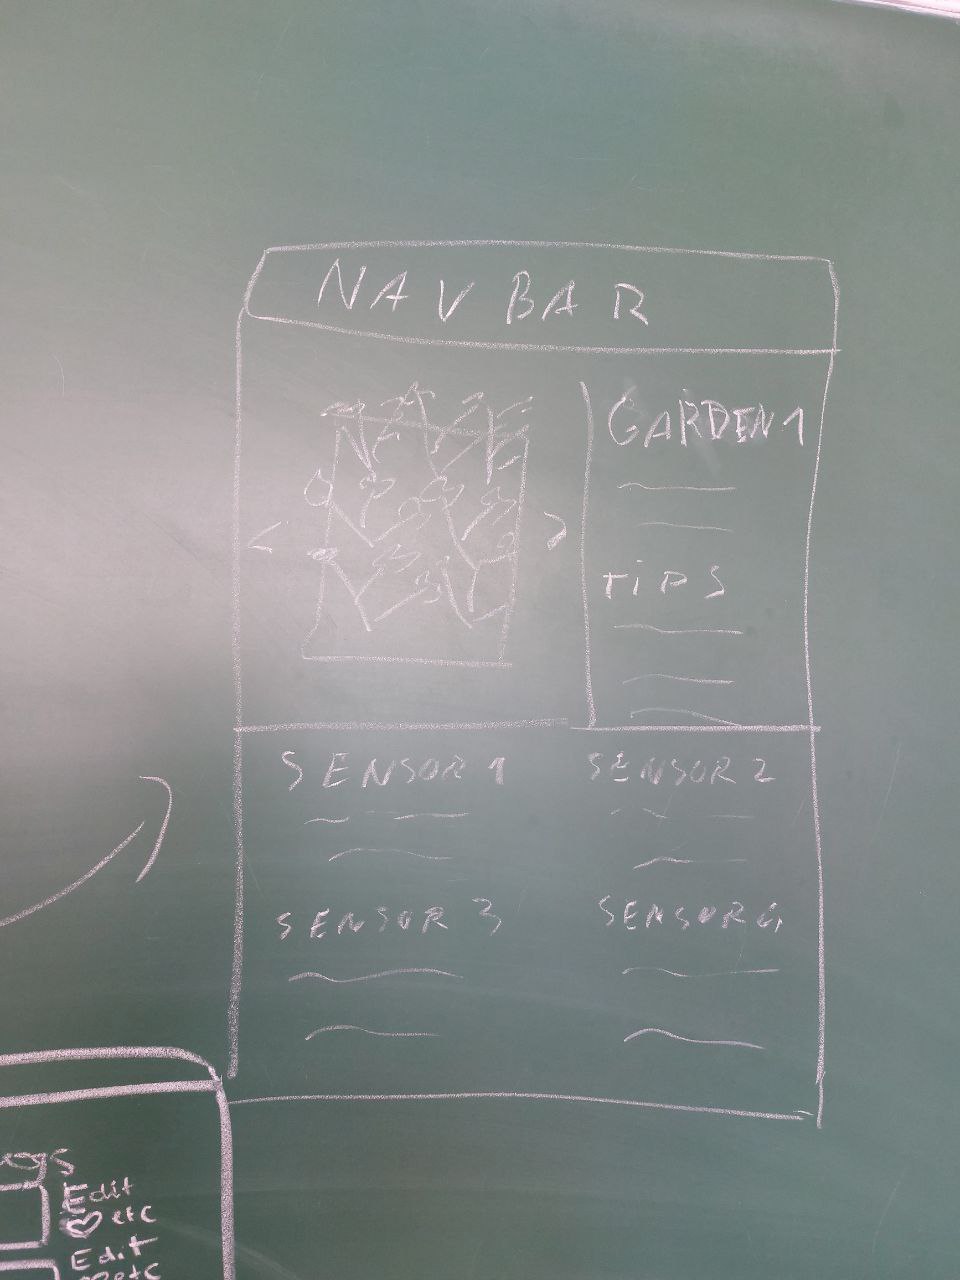 NAVBAR
GARDEN 1
TIPS
SENSOR 1
SENSOR 2
SENSOR 3
SENSOR 4
Edit
etc
Edit
etc